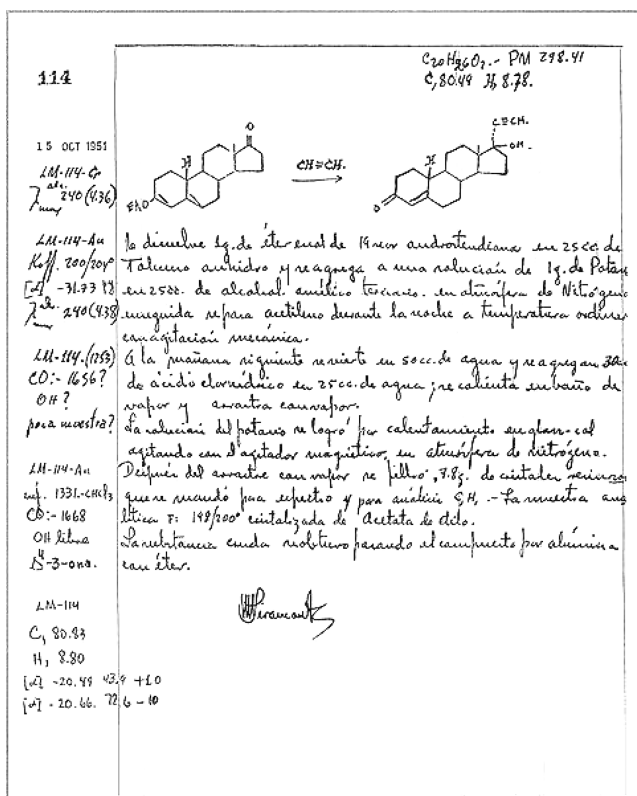 114
C20H26O2.- PM 298.41
C, 80.49 H, 8.78.
15 OCT 1951
O
H
EtO
CH≡CH.
C≡CH.
OH.
H
O
LM-114-Cr
λ alc. max 240 (4.36)
LM-114-An
Koff. 200/204°
[α] -31.73
λ alc. max 240 (4.38)
LM-114.(1253)
CO:- 1656?
OH?
poca muestra?
LM-114-An
inf. 1331.-CHCl3
CO:- 1668
OH libre
Δ4-3-ona.
LM-114
C, 80.83
H, 8.80
[α] -20.49 43.9 +10
[α] -20.66. 72.6 -10
Se disuelve 1g. de éter enol de 19 nor androstendiona en 25cc. de
Tolueno anhidro y se agrega a una solución de 1g. de Potasio
en 25cc. de alcohol amílico terciario. en atmósfera de Nitrógeno
enseguida se pasa acetileno durante la noche a temperatura
con agitación mecánica.
A la mañana siguiente se vierte en 50cc. de agua y se agregan
de ácido clorhídrico en 25cc. de agua; se calienta en baño de
vapor y arrastra con vapor.
La solución del potasio se logró por calentamiento en glas-col
agitando con el agitador magnético, en atmósfera de nitrógeno.
Después del arrastre con vapor se filtró, de cristales
que se mandó para espectro y para análisis C,H, .- La muestra
lítica F: 198/200° cristalizada de Acetato de etilo.
La substancia cruda se obtuvo pasando el compuesto por alúmina
con éter.